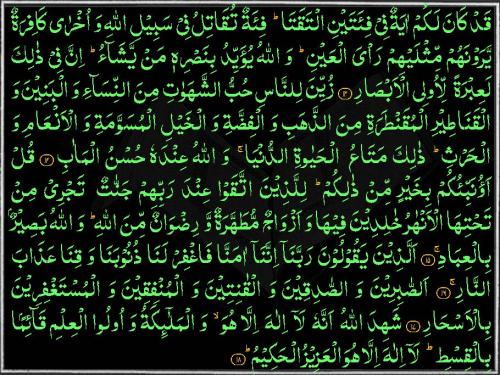 قَدْ كَانَ لَكُمْ اٰيَةٌ فِيْ فِئَتَيْنِ الْتَقَتَا ؕ فِئَةٌ تُقَاتِلُ فِيْ سَبِيْلِ اللّٰهِ وَ اُخْرٰى كَافِرَةٌ
يَّرَوْنَهُمْ مِّثْلَيْهِمْ رَاْيَ الْعَيْنِ ؕ وَ اللّٰهُ يُؤَيِّدُ بِنَصْرِهٖ مَنْ يَّشَآءُ ؕ اِنَّ فِيْ ذٰلِكَ
لَعِبْرَةً لِّاُولِي الْاَبْصَارِ ۝۱۳ زُيِّنَ لِلنَّاسِ حُبُّ الشَّهَوٰتِ مِنَ النِّسَآءِ وَ الْبَنِيْنَ وَ
الْقَنَاطِيْرِ الْمُقَنْطَرَةِ مِنَ الذَّهَبِ وَ الْفِضَّةِ وَ الْخَيْلِ الْمُسَوَّمَةِ وَ الْاَنْعَامِ وَ
الْحَرْثِ ؕ ذٰلِكَ مَتَاعُ الْحَيٰوةِ الدُّنْيَا ۚ وَ اللّٰهُ عِنْدَهٗ حُسْنُ الْمَاٰبِ ۝۱۴ قُلْ
اَؤُنَبِّئُكُمْ بِخَيْرٍ مِّنْ ذٰلِكُمْ ؕ لِلَّذِيْنَ اتَّقَوْا عِنْدَ رَبِّهِمْ جَنّٰتٌ تَجْرِيْ مِنْ
تَحْتِهَا الْاَنْهٰرُ خٰلِدِيْنَ فِيْهَا وَ اَزْوَاجٌ مُّطَهَّرَةٌ وَّ رِضْوَانٌ مِّنَ اللّٰهِ ؕ وَ اللّٰهُ بَصِيْرٌۢ
بِالْعِبَادِ ۚ۝۱۵ اَلَّذِيْنَ يَقُوْلُوْنَ رَبَّنَاۤ اِنَّنَاۤ اٰمَنَّا فَاغْفِرْ لَنَا ذُنُوْبَنَا وَ قِنَا عَذَابَ
النَّارِ ۚ۝۱۶ اَلصّٰبِرِيْنَ وَ الصّٰدِقِيْنَ وَ الْقٰنِتِيْنَ وَ الْمُنْفِقِيْنَ وَ الْمُسْتَغْفِرِيْنَ
بِالْاَسْحَارِ ۝۱۷ شَهِدَ اللّٰهُ اَنَّهٗ لَاۤ اِلٰهَ اِلَّا هُوَ ۙ وَ الْمَلٰٓئِكَةُ وَ اُولُوا الْعِلْمِ قَآئِمًۢا
بِالْقِسْطِ ؕ لَاۤ اِلٰهَ اِلَّا هُوَ الْعَزِيْزُ الْحَكِيْمُ ؕ۝۱۸